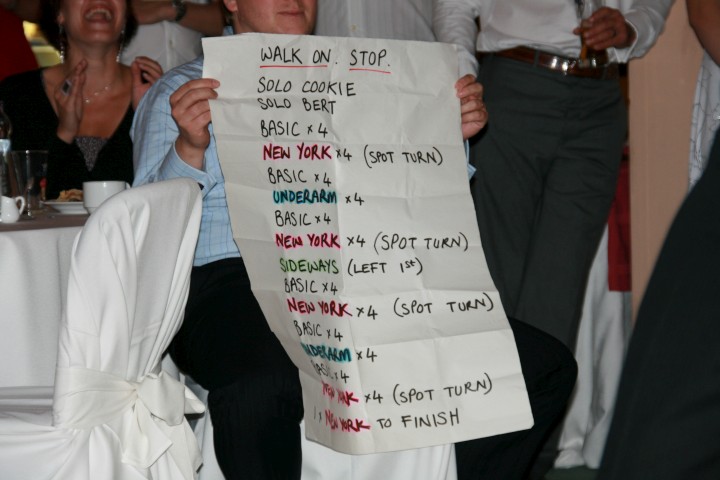 WALK ON. STOP.
SOLO COOKIE
SOLO BERT
BASIC × 4
NEW YORK × 4 (SPOT TURN)
BASIC × 4
UNDERARM × 4
BASIC × 4
NEW YORK × 4 (SPOT TURN)
SIDEWAYS (LEFT 1st)
BASIC × 4
NEW YORK × 4 (SPOT TURN)
BASIC × 4
UNDERARM × 4
BASIC × 4
NEW YORK × 4 (SPOT TURN)
1 × NEW YORK TO FINISH